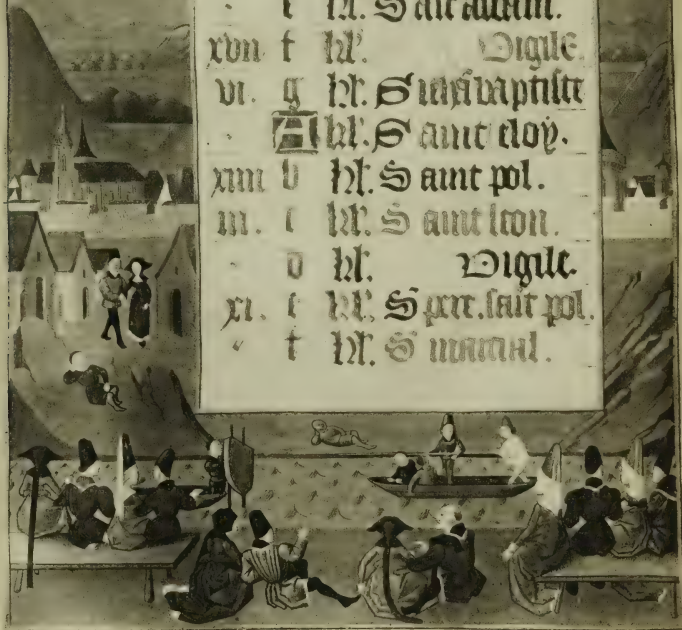 e kl. Sait
xvii f kl. Vigile.
vi. g kl. S baptiste
A kl. Saint eloy.
xiiii b kl. Saint pol.
iii. c kl. Saint leon.
d kl. Vigile.
xi. e kl. S pere. sait pol.
f kl. S marcial.